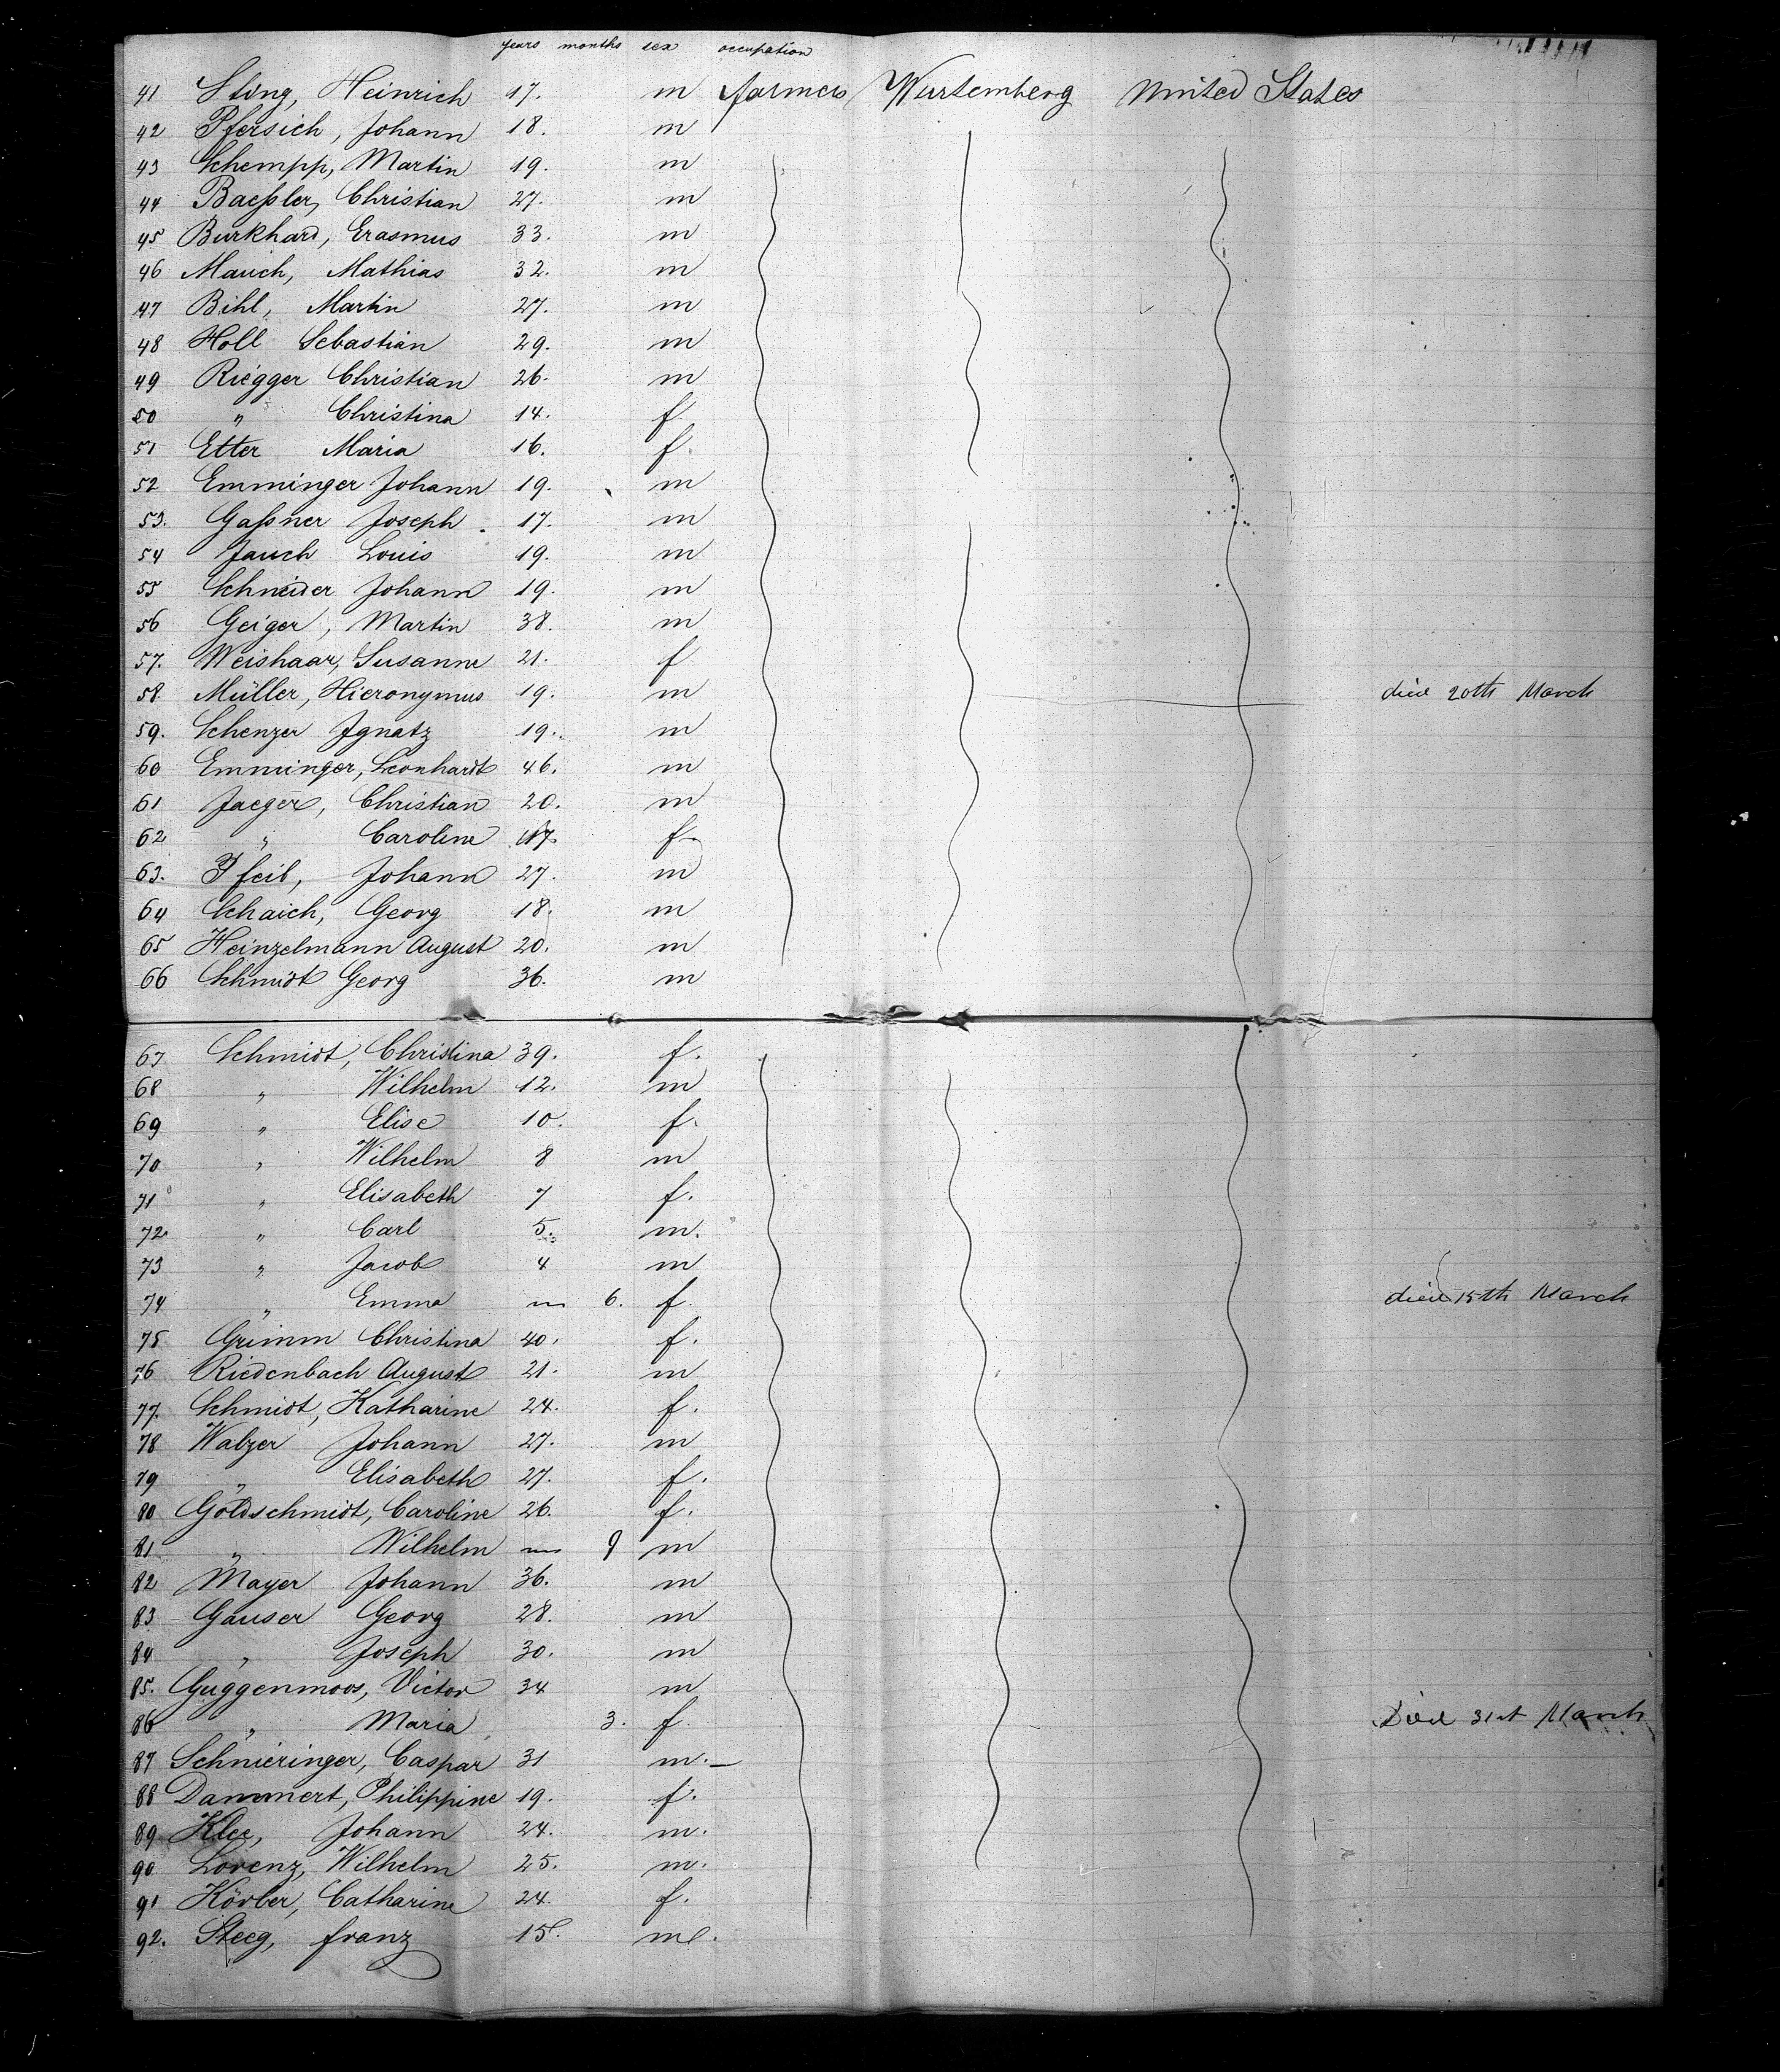 years months sex occupation
41 Sting, Heinrich 17. m farmers Wurtemberg United States
42 Pfersich, Johann 18. m
43 Schempp, Martin 19. m
44 Baeßler, Christian 27. m
45 Burkhard, Erasmus 33. m
46 Mauch, Mathias 32. m
47 Bihl, Martin 27. m
48 Holl Sebastian 29. m
49 Riegger Christian 26. m
50 " Christina 14. f
51 Etter Maria 16. f.
52 Emminger Johann 19. m
53. Gaßner Joseph 17. m
54 Jauch Louis 19. m
55 Schneider Johann 19. m
56 Geiger, Martin 38. m
57. Weishaar, Susanne 21. f
58. Müller, Hieronymus 19. m died 20th March
59. Schenzer Ignatz 19. m
60 Emminger, Leonhardt 46. m
61 Jaeger, Christian 20. m
62 " Caroline 17. f
63. Pfeib, Johann 27. m
64 Schaich, Georg 18. m
65 Heinzelmann August 20. m
66 Schmidt Georg 36. m
67 Schmidt, Christina 39. f.
68 " Wilhelm 12. m
69 " Elise 10. f.
70 " Wilhelm 8 m
71 " Elisabeth 7 f.
72 " Carl 5. m.
73 " Jacob 4 m
74 " Emma 6. f. died 15th March
75 Grimm Christina 40. f.
76 Riedenbach August 21. m
77. Schmidt, Katharine 24. f.
78 Walzer Johann 27. m
79 " Elisabeth 27. f.
80 Goldschmidt, Caroline 26. f.
81 " Wilhelm 9 m
82 Mayer Johann 36. m
83 Gauser Georg 28. m
84 " Joseph 30. m
85. Guggenmoos, Victor 34 m
86 " Maria 3. f. Died 31st March
87 Schnieringer, Caspar 31 m.
88 Dammert, Philippine 19. f.
89 Klee, Johann 24. m.
90 Lorenz, Wilhelm 25. m.
91 Körber, Catharine 24. f.
92. Steeg, Franz 15. m.